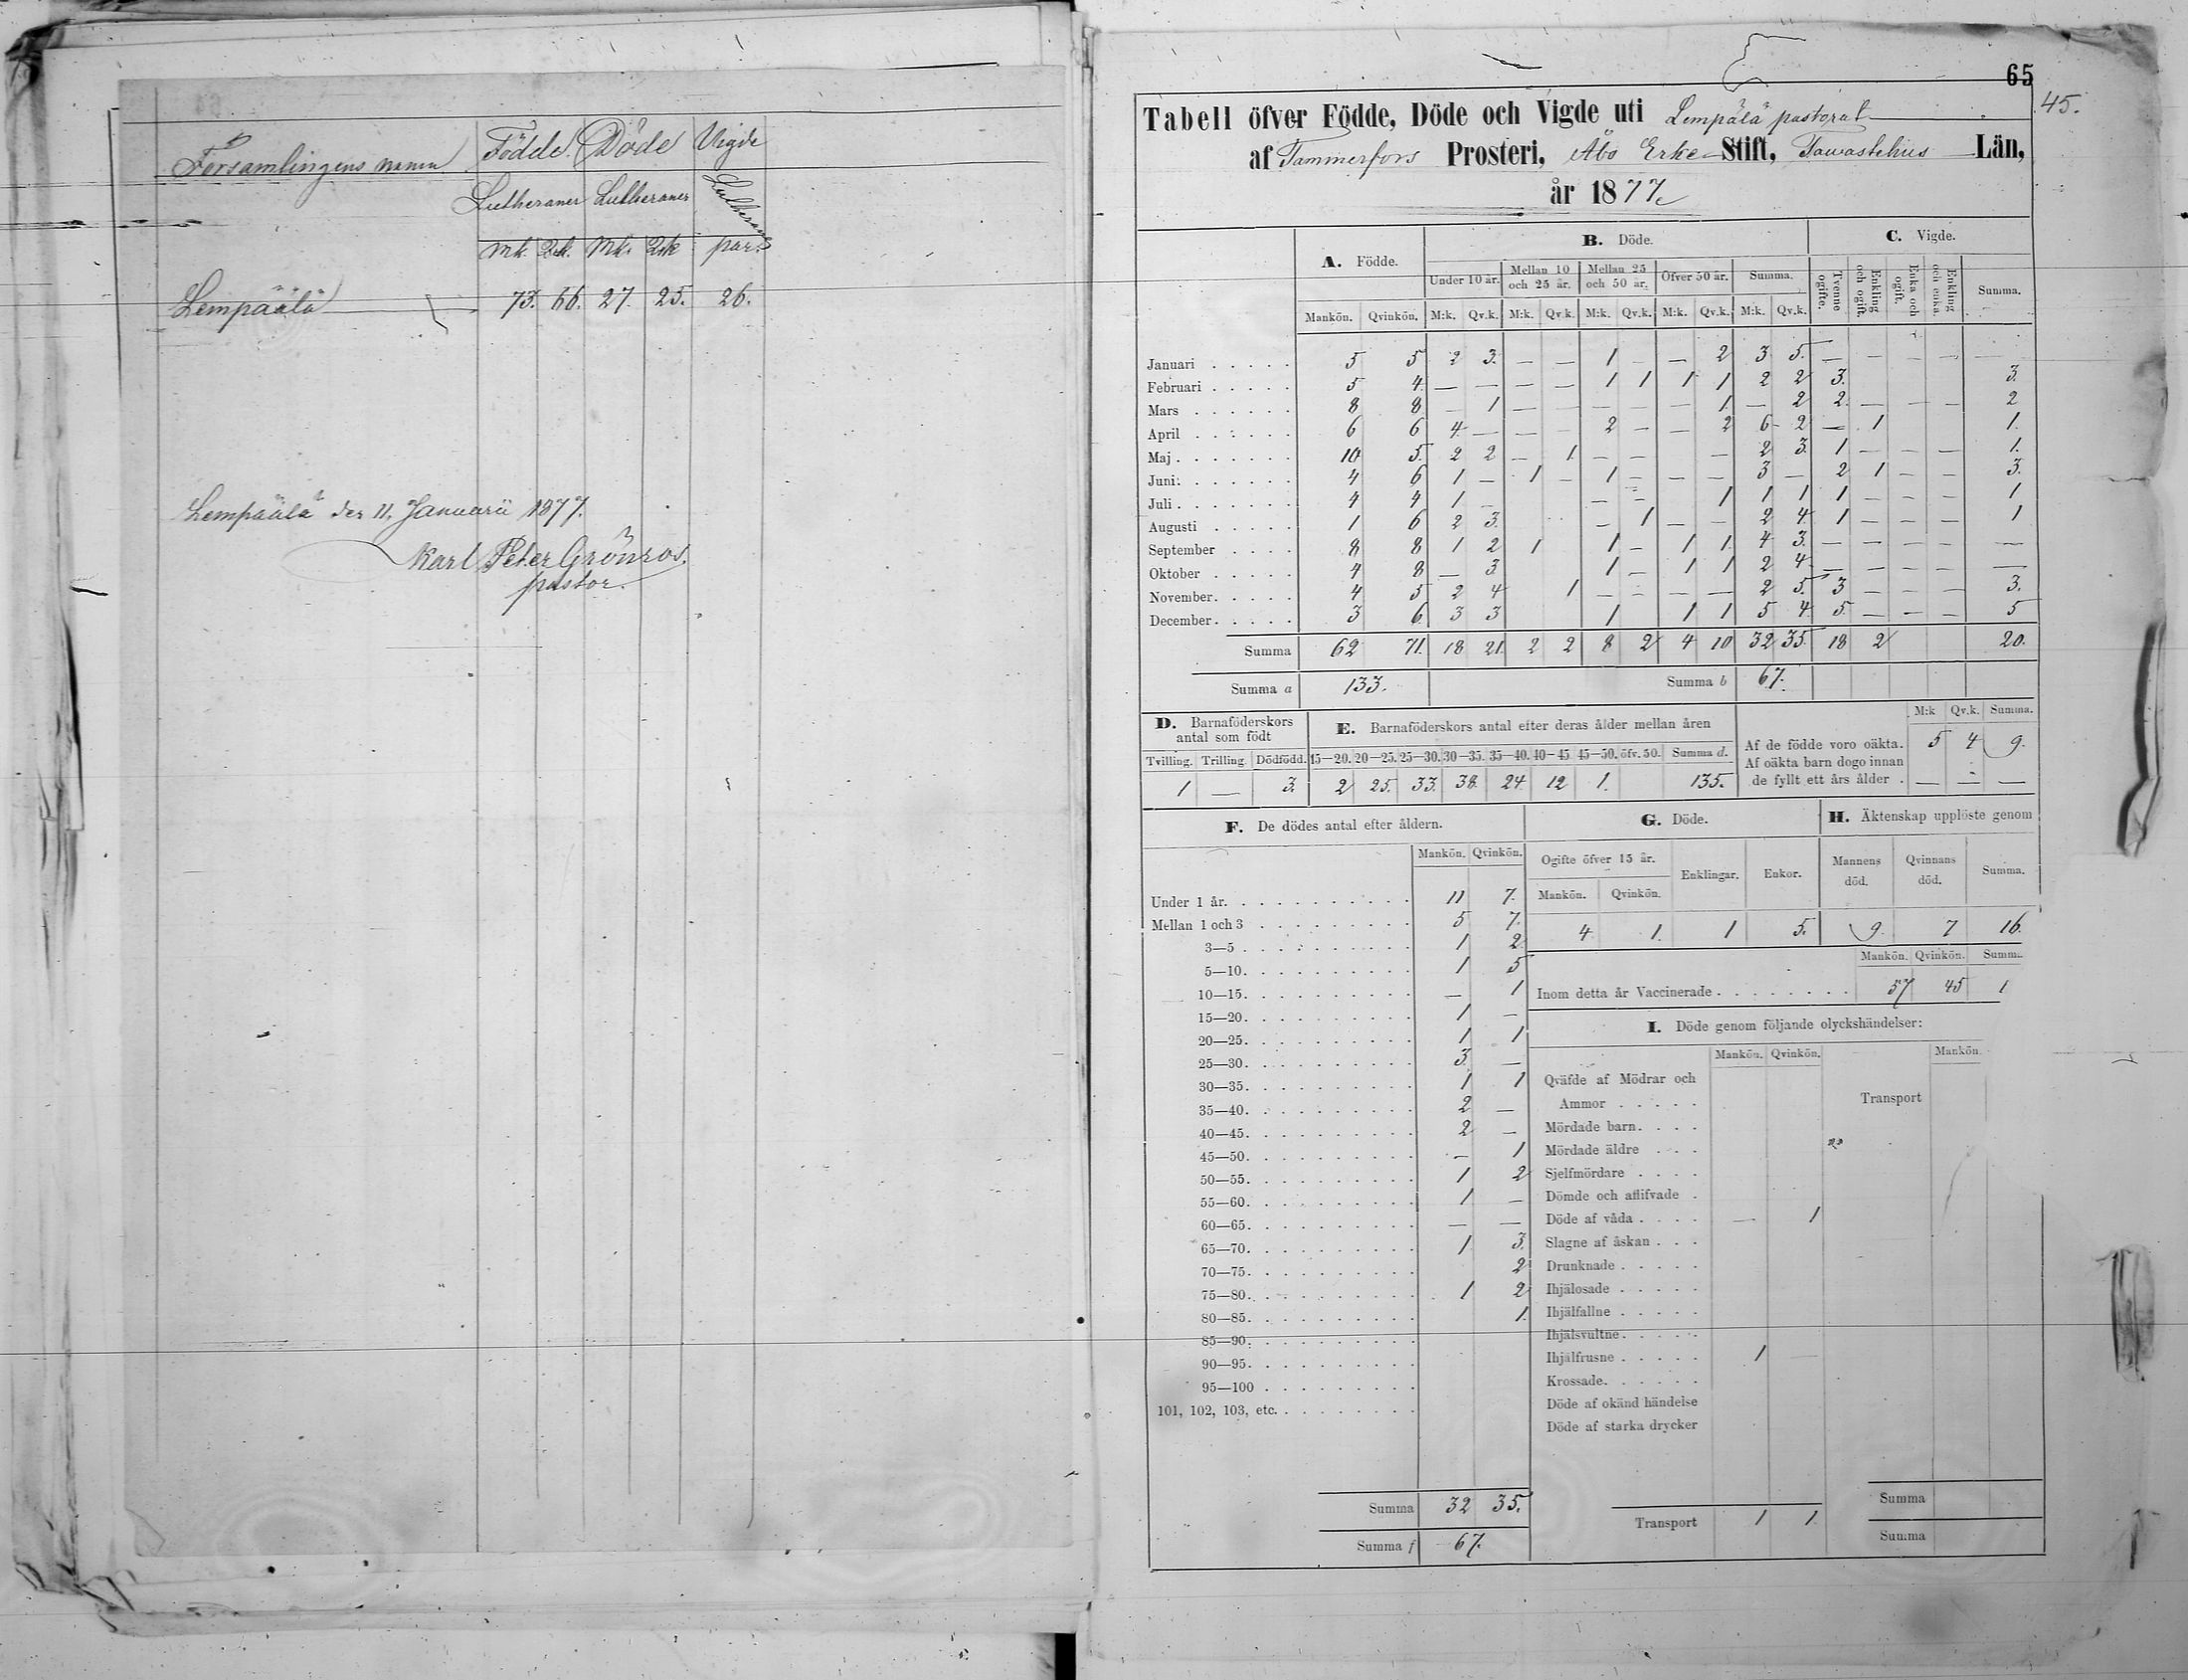 Församlingens namn Födde. Döde Vigde
Lutheraner Lutheraner Lutheraner
Mk. Qk. Mk. Qk par.
Lempäälä 73. 66. 27. 25. 26.
Lempäälä den 11. Januarii 1877.
Karl Peter Grönros.
pastor.
65
45.
Tabell öfver Födde, Döde och Vigde uti Lempälä pastorat
af Tammerfors Prosteri, Åbo Erke- Stift, Tawastehus Län,
år 1877.
A. Födde. B. Döde. C. Vigde.
Under 10 år. Mellan 10 och 25 år. Mellan 25 och 50 år. Öfver 50 år. Summa. Tvenne ogifte. Enkling och ogift. Enka och ogift. Enkling och enka. Summa.
Mankön. Qvinkön. M:k. Qv.k. M:k. Qv.k. M:k. Qv.k. M:k. Qv.k. M:k. Qv.k.
Januari 5 5 2 3. — — 1 — — 2 3 5. — — — — —
Februari 5 4 — — — — 1 1 1 1 2 2 3. 3.
Mars 8 8 — 1 — — — — — 1. — 2 2. — — — 2
April 6 6 4 — — — 2 — — 2 6 2 — 1 1.
Maj 10 5. 2 2 — 1. — — — 2 3. 1 — — — 1.
Juni 4 6 1 — 1 — 1 — — — 3 — 2 1 — — 3.
Juli 4 4 1 — — — 1 1 1 1 — — — 1
Augusti 1 6 2 3. — 1 — — 2 4. 1 — — — 1
September 8 8 1 2 1 1 — 1 1. 4 3. — — — — —
Oktober 4 8 — 3 1 — 1 1 2 4. — — — — —
November 4 5 2 4 1 — — — — 2 5. 3 — — — 3.
December 3 6 3 3 1 1 1 5 4 5. — — — 5
Summa 62 71. 18 21. 2 2 8 2 4 10 32 35. 18 2 20.
Summa a 133. Summa b 67.
D. Barnaföderskors antal som födt
E. Barnaföderskors antal efter deras ålder mellan åren
M:k Qv.k. Summa.
Tvilling. Trilling. Dödfödd. 15—20. 20—25. 25—30. 30—35. 35—40. 40—45 45—50. öfv. 50. Summa d.
Af de födde voro oäkta. 5 4 9.
Af oäkta barn dogo innan
de fyllt ett års ålder . — — —
1 — 3. 2 25. 33. 38. 24. 12 1. 135.
F. De dödes antal efter åldern.
Mankön. Qvinkön.
Under 1 år. 11 7.
Mellan 1 och 3 5 7.
3—5 1 2
5—10. 1 5
10—15. — 1
15—20. 1 —
20—25. 1 1
25—30. 3. —
30—35. 1 1
35—40. 2 —
40—45. 2 —
45—50. — 1
50—55. 1 2
55—60. 1 —
60—65. — —
65—70. 1 3.
70—75. 2
75—80. 1 2
80—85. 1.
85—90.
90—95.
95—100
101, 102, 103, etc.
Summa 32 35.
Summa f 67.
G. Döde.
Ogifte öfver 15 år. Enklingar. Enkor.
Mankön. Qvinkön.
4 1. 1 5.
H. Äktenskap upplöste genom
Mannens död. Qvinnans död. Summa.
9. 7 16.
Mankön. Qvinkön. Summa.
Inom detta år Vaccinerade 57 45 1
I. Döde genom följande olyckshändelser:
Mankön. Qvinkön. Mankön.
Qväfde af Mödrar och
Ammor
Transport
Mördade barn.
Mördade äldre
Sjelfmördare
Dömde och aflifvade
Döde af våda — 1
Slagne af åskan
Drunknade
Ihjälosade
Ihjälfallne
Ihjälsvultne
Ihjälfrusne 1 —
Krossade.
Döde af okänd händelse
Döde af starka drycker
Transport 1 1.
Summa
Summa